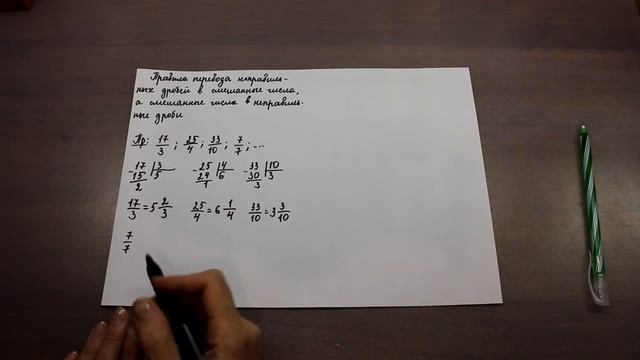 Правила перевода неправиль-
ных дробей в смешанные числа,
а смешанные числа в неправиль-
ные дроби
Пр: 17/3 ; 25/4 ; 33/10 ; 7/7 ; ...
-17 |3   -25 |4   -33 |10
15 |5   24 |6   30 |3
2   1   3
17/3 = 5 2/3   25/4 = 6 1/4   33/10 = 3 3/10
7/7